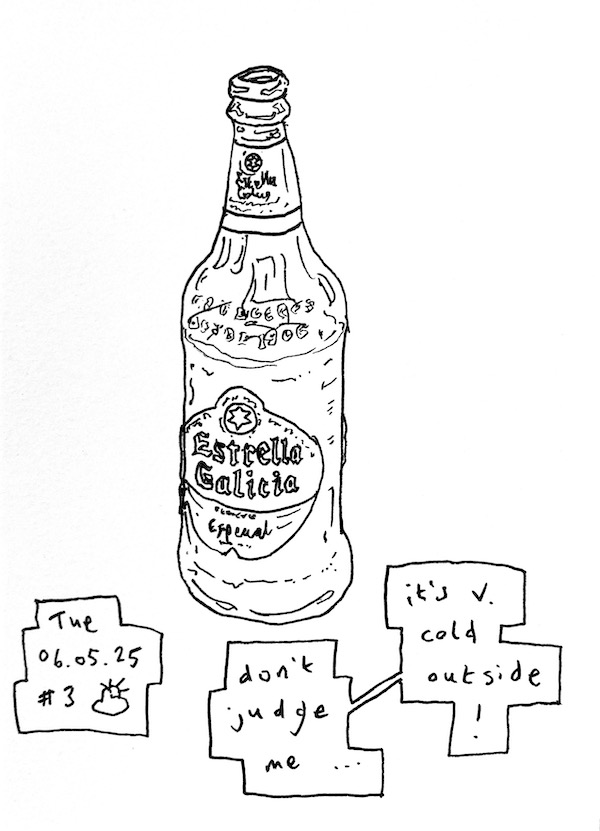 Estrella
Galicia
Especial
Tue
06.05.25
#3
don't
judge
me ...
it's v.
cold
outside
!